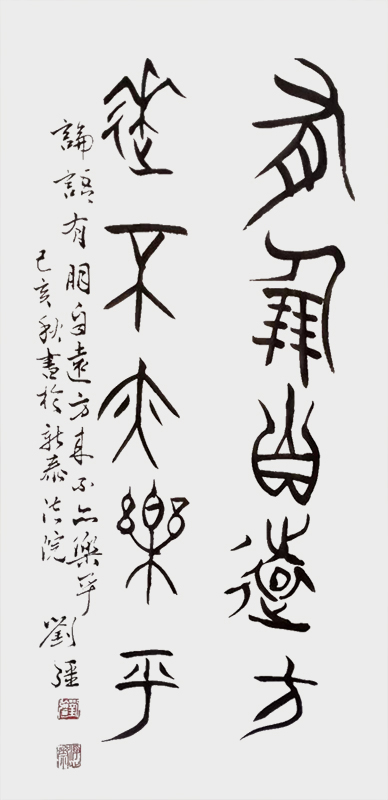 有朋自遠方
來不亦樂乎
論語有朋自遠方來不亦樂乎
己亥秋書於新泰法院
劉疆